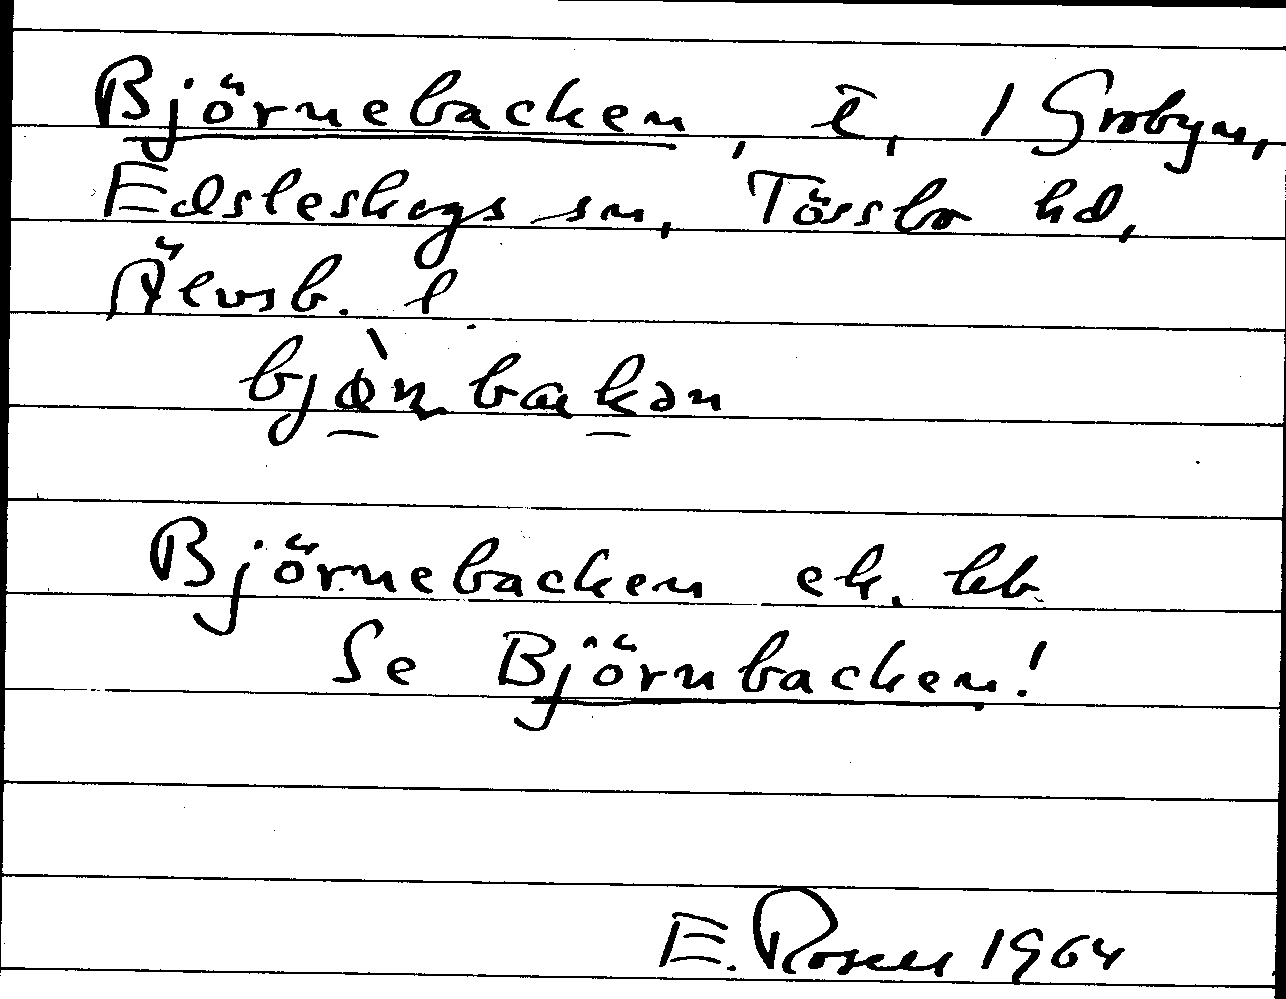 Björnebacken, l, 1 Grobyn,
Edsleskogs sn, Tössbo hd,
Älvsb. l
bjø̀n backən
Björnebacken ek. kb
Se Björnbacken!
E. Rosell 1964